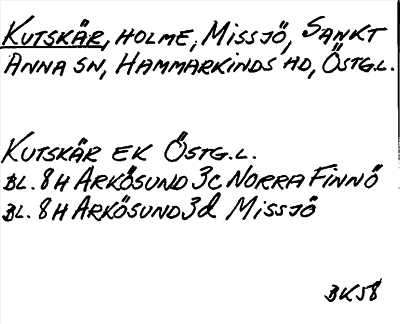 KUTSKÄR, HOLME, MISSJÖ, SANKT
ANNA SN, HAMMARKINDS HD, ÖSTG.L.
KUTSKÄR EK ÖSTG.L.
BL. 8H ARKÖSUND 3c NORRA FINNÖ
BL. 8H ARKÖSUND 3d MISSJÖ
BK58